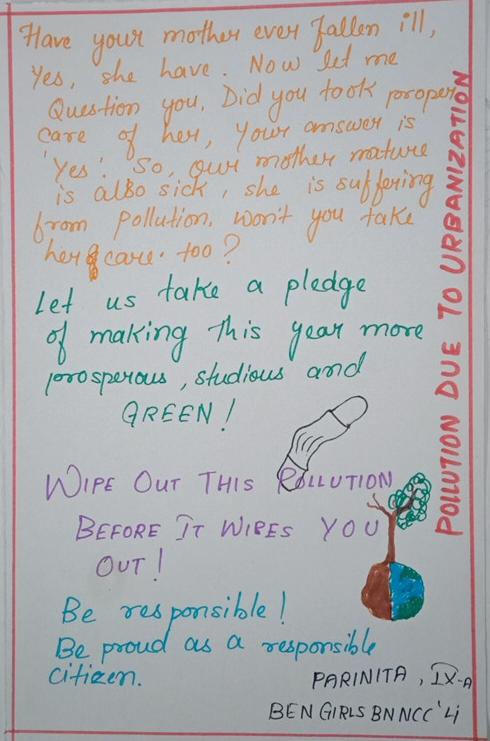 Have your mother ever fallen ill,
Yes, she have. Now let me
Question you, Did you took proper
care of her, Your answer is
'Yes'. So, our mother nature
is also sick, she is suffering
from pollution. Won't you take
her care too?
Let us take a pledge
of making this year more
prosperous, studious and
GREEN!
WIPE OUT THIS POLLUTION
BEFORE IT WIPES YOU
OUT!
Be responsible!
Be proud as a responsible
citizen.
PARINITA, IX-A
BEN GIRLS BN NCC '4
POLLUTION DUE TO URBANIZATION